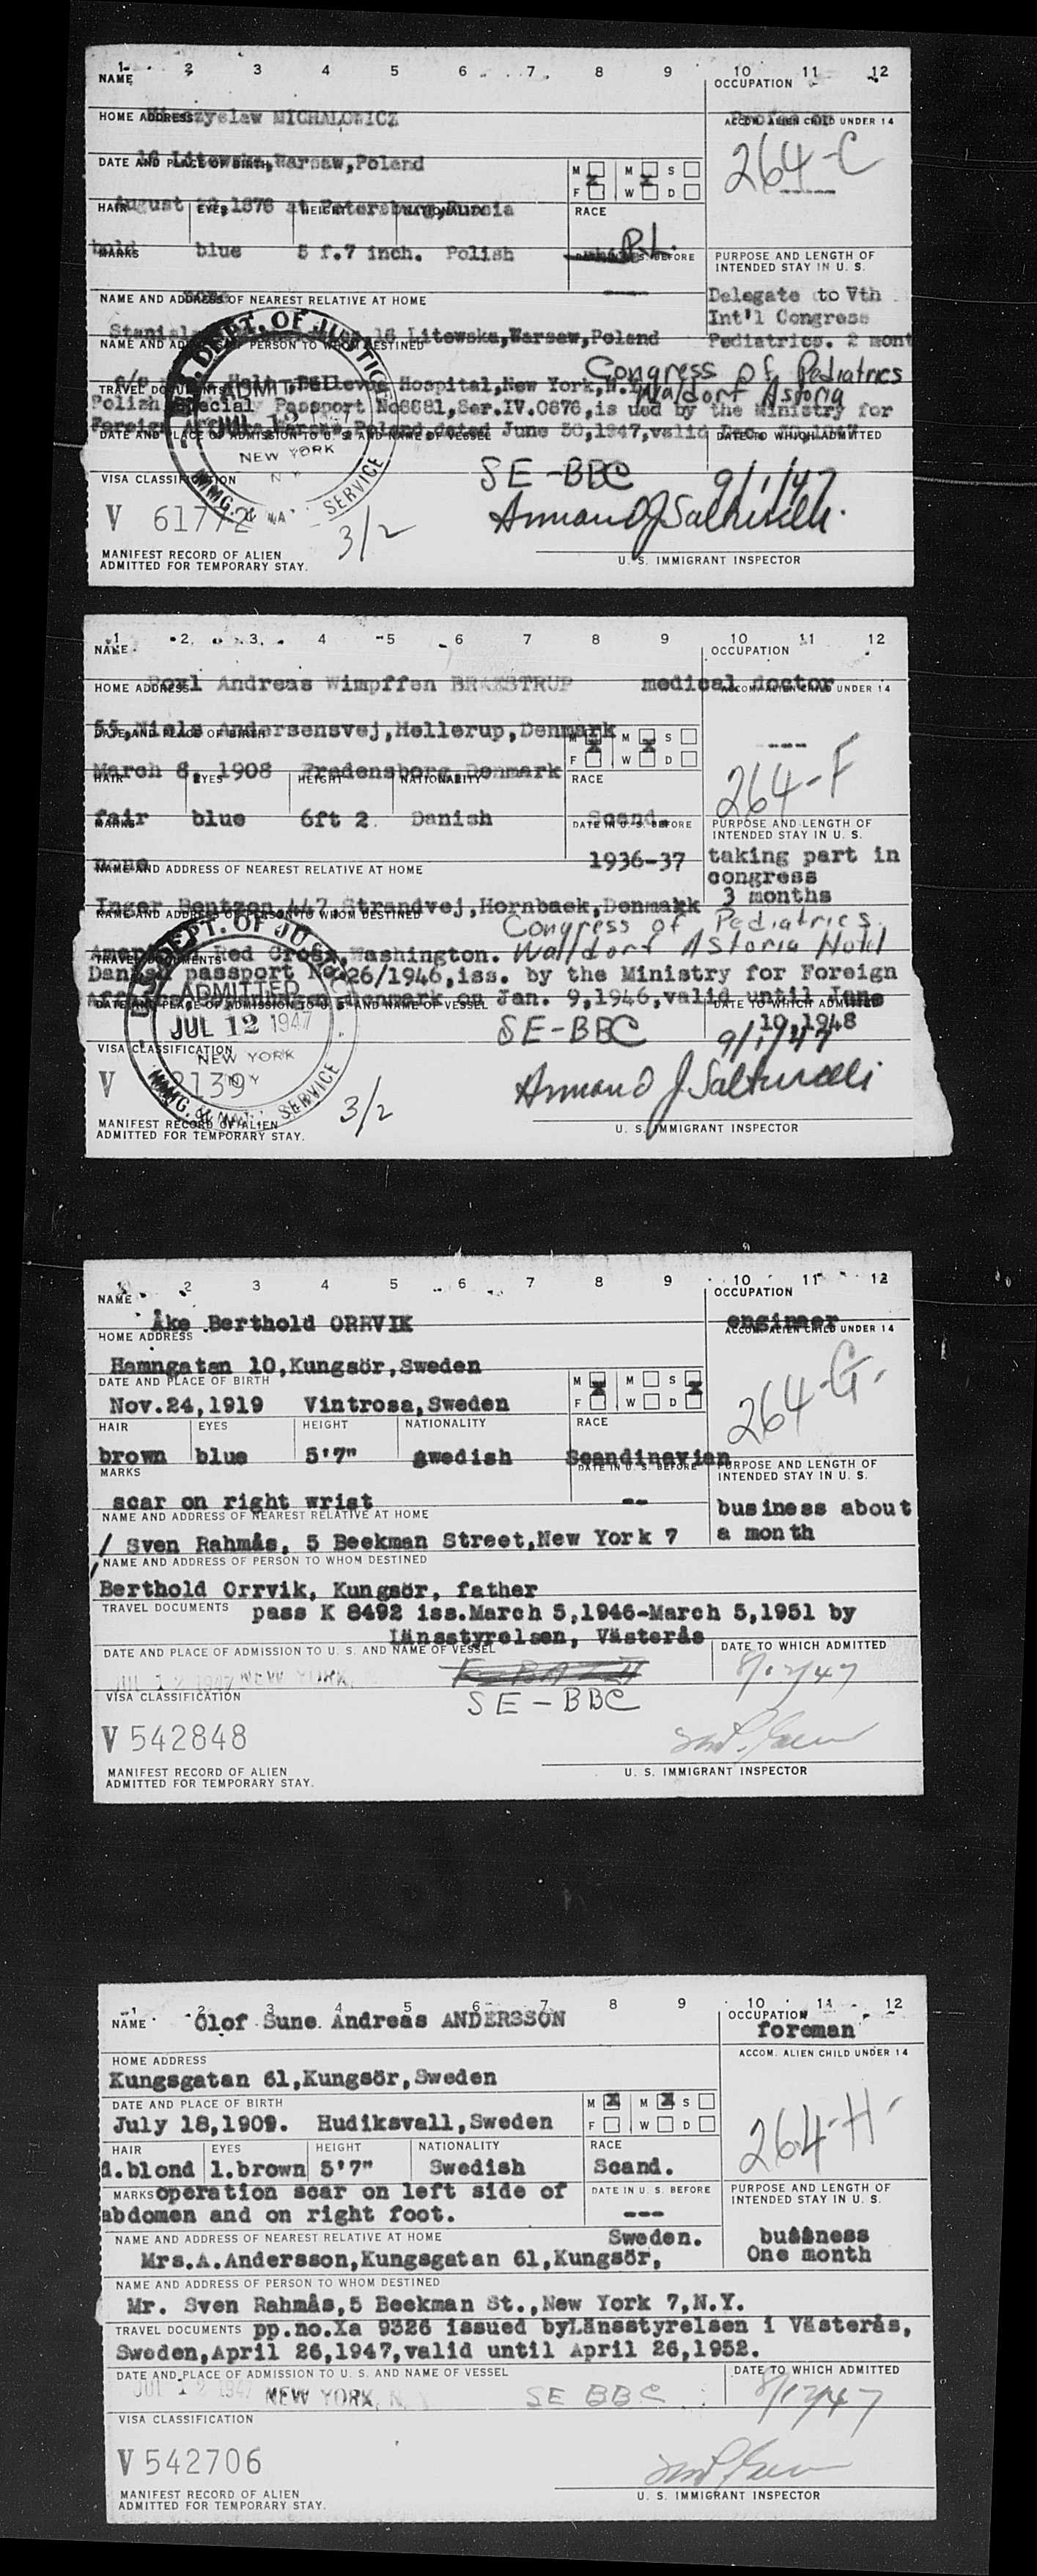 1 2 3 4 5 6 7 8 9 10 11 12
NAME OCCUPATION
HOME ADDRESS MICHALOWICZ ACCOM. ALIEN CHILD UNDER 14
264-C
DATE AND PLACE OF BIRTH 16 Litowska, Warsaw, Poland M M S
F W D
HAIR EYES HEIGHT NATIONALITY RACE
August 1876 at Petersburg, Russia
bald blue 5 f.7 inch. Polish Pol.
MARKS DATE IN U. S. BEFORE PURPOSE AND LENGTH OF
INTENDED STAY IN U. S.
NAME AND ADDRESS OF NEAREST RELATIVE AT HOME ---- Delegate to Vth
Int'l Congress
16 Litowska, Warsaw, Poland Pediatrics. 2 mont
NAME AND ADDRESS OF PERSON TO WHOM DESTINED
Congress of Pediatrics
c/o Holt, Bellevue Hospital, New York, N.Y. Waldorf Astoria
TRAVEL DOCUMENTS
Polish Special Passport No6681, Ser.IV.0676, is ued by the Ministry for
Foreign Poland, dated June 30, 1947, valid
DATE AND PLACE OF ADMISSION TO U. S. AND NAME OF VESSEL DATE TO WHICH ADMITTED
U.S. DEPT. OF JUSTICE
ADMITTED
JUL
NEW YORK
N Y
IMMG. & NAT. SERVICE
SE-BBC 9/1/47
VISA CLASSIFICATION
V 61772 3/2
MANIFEST RECORD OF ALIEN
ADMITTED FOR TEMPORARY STAY.
U. S. IMMIGRANT INSPECTOR
1 2 3 4 5 6 7 8 9 10 11 12
NAME OCCUPATION
HOME ADDRESS Poul Andreas Wimpffen BRAESTRUP medical doctor ACCOM. ALIEN CHILD UNDER 14
55, Niels Andersensvej, Hellerup, Denmark
DATE AND PLACE OF BIRTH M M S
F W D
---
264-F
March 8, 1908 Fredensborg Denmark
HAIR EYES HEIGHT NATIONALITY RACE
fair blue 6ft 2 Danish Scand.
MARKS DATE IN U. S. BEFORE PURPOSE AND LENGTH OF
INTENDED STAY IN U. S.
none 1936-37 taking part in
congress
3 months
NAME AND ADDRESS OF NEAREST RELATIVE AT HOME
Inger Bentzen 447 Strandvej, Hornbaek, Denmakk
NAME AND ADDRESS OF PERSON TO WHOM DESTINED
Congress of Pediatrics.
American Red Cross, Washington. Walldorf Astoria Hotel
TRAVEL DOCUMENTS
Danish passport No.26/1946, iss. by the Ministry for Foreign
Jan. 9, 1946, valid until June
10, 1948
DATE AND PLACE OF ADMISSION TO U. S. AND NAME OF VESSEL DATE TO WHICH ADMITTED
DEPT. OF JU
ADMITTED
JUL 12 1947
NEW YORK
N Y
IMMG. & NAT. SERVICE
SE-BBC 9/1/47
VISA CLASSIFICATION
V 2139 3/2
MANIFEST RECORD OF ALIEN
ADMITTED FOR TEMPORARY STAY.
U. S. IMMIGRANT INSPECTOR
1 2 3 4 5 6 7 8 9 10 11 12
NAME OCCUPATION
Åke Berthold ORRVIK engineer
HOME ADDRESS ACCOM. ALIEN CHILD UNDER 14
Hamngatan 10, Kungsör, Sweden
264-G-
DATE AND PLACE OF BIRTH M M S
F W D
Nov.24,1919 Vintrosa, Sweden
HAIR EYES HEIGHT NATIONALITY RACE
brown blue 5'7" swedish Scandinavian
MARKS DATE IN U. S. BEFORE PURPOSE AND LENGTH OF
INTENDED STAY IN U. S.
scar on right wrist -- business about
a month
NAME AND ADDRESS OF NEAREST RELATIVE AT HOME
/ Sven Rahmås, 5 Beekman Street, New York 7
NAME AND ADDRESS OF PERSON TO WHOM DESTINED
Berthold Orrvik, Kungsör, father
TRAVEL DOCUMENTS pass K 8492 iss.March 5,1946-March 5,1951 by
Länsstyrelsen, Västerås
DATE AND PLACE OF ADMISSION TO U. S. AND NAME OF VESSEL DATE TO WHICH ADMITTED
JUL 12 1947 NEW YORK, 8/12/47
SE-BBC
VISA CLASSIFICATION
V 542848
MANIFEST RECORD OF ALIEN
ADMITTED FOR TEMPORARY STAY.
U. S. IMMIGRANT INSPECTOR
1 2 3 4 5 6 7 8 9 10 11 12
NAME Olof Sune Andreas ANDERSSON OCCUPATION
foreman
HOME ADDRESS ACCOM. ALIEN CHILD UNDER 14
Kungsgatan 61, Kungsör, Sweden
264-H-
DATE AND PLACE OF BIRTH M M S
F W D
July 18,1909. Hudiksvall, Sweden
HAIR EYES HEIGHT NATIONALITY RACE
d.blond l.brown 5'7" Swedish Scand.
MARKS operation scar on left side of DATE IN U. S. BEFORE PURPOSE AND LENGTH OF
INTENDED STAY IN U. S.
abdomen and on right foot. ---
NAME AND ADDRESS OF NEAREST RELATIVE AT HOME Sweden. One month
Mrs.A.Andersson, Kungsgatan 61, Kungsör,
NAME AND ADDRESS OF PERSON TO WHOM DESTINED
Mr. Sven Rahmås, 5 Beekman St., New York 7, N.Y.
TRAVEL DOCUMENTS pp.no.Xa 9326 issued byLänsstyrelsen i Västerås,
Sweden, April 26,1947, valid until April 26,1952.
DATE AND PLACE OF ADMISSION TO U. S. AND NAME OF VESSEL DATE TO WHICH ADMITTED
JUL 12 1947 NEW YORK, N. SE BBC 8/12/47
VISA CLASSIFICATION
V 542706
MANIFEST RECORD OF ALIEN
ADMITTED FOR TEMPORARY STAY.
U. S. IMMIGRANT INSPECTOR